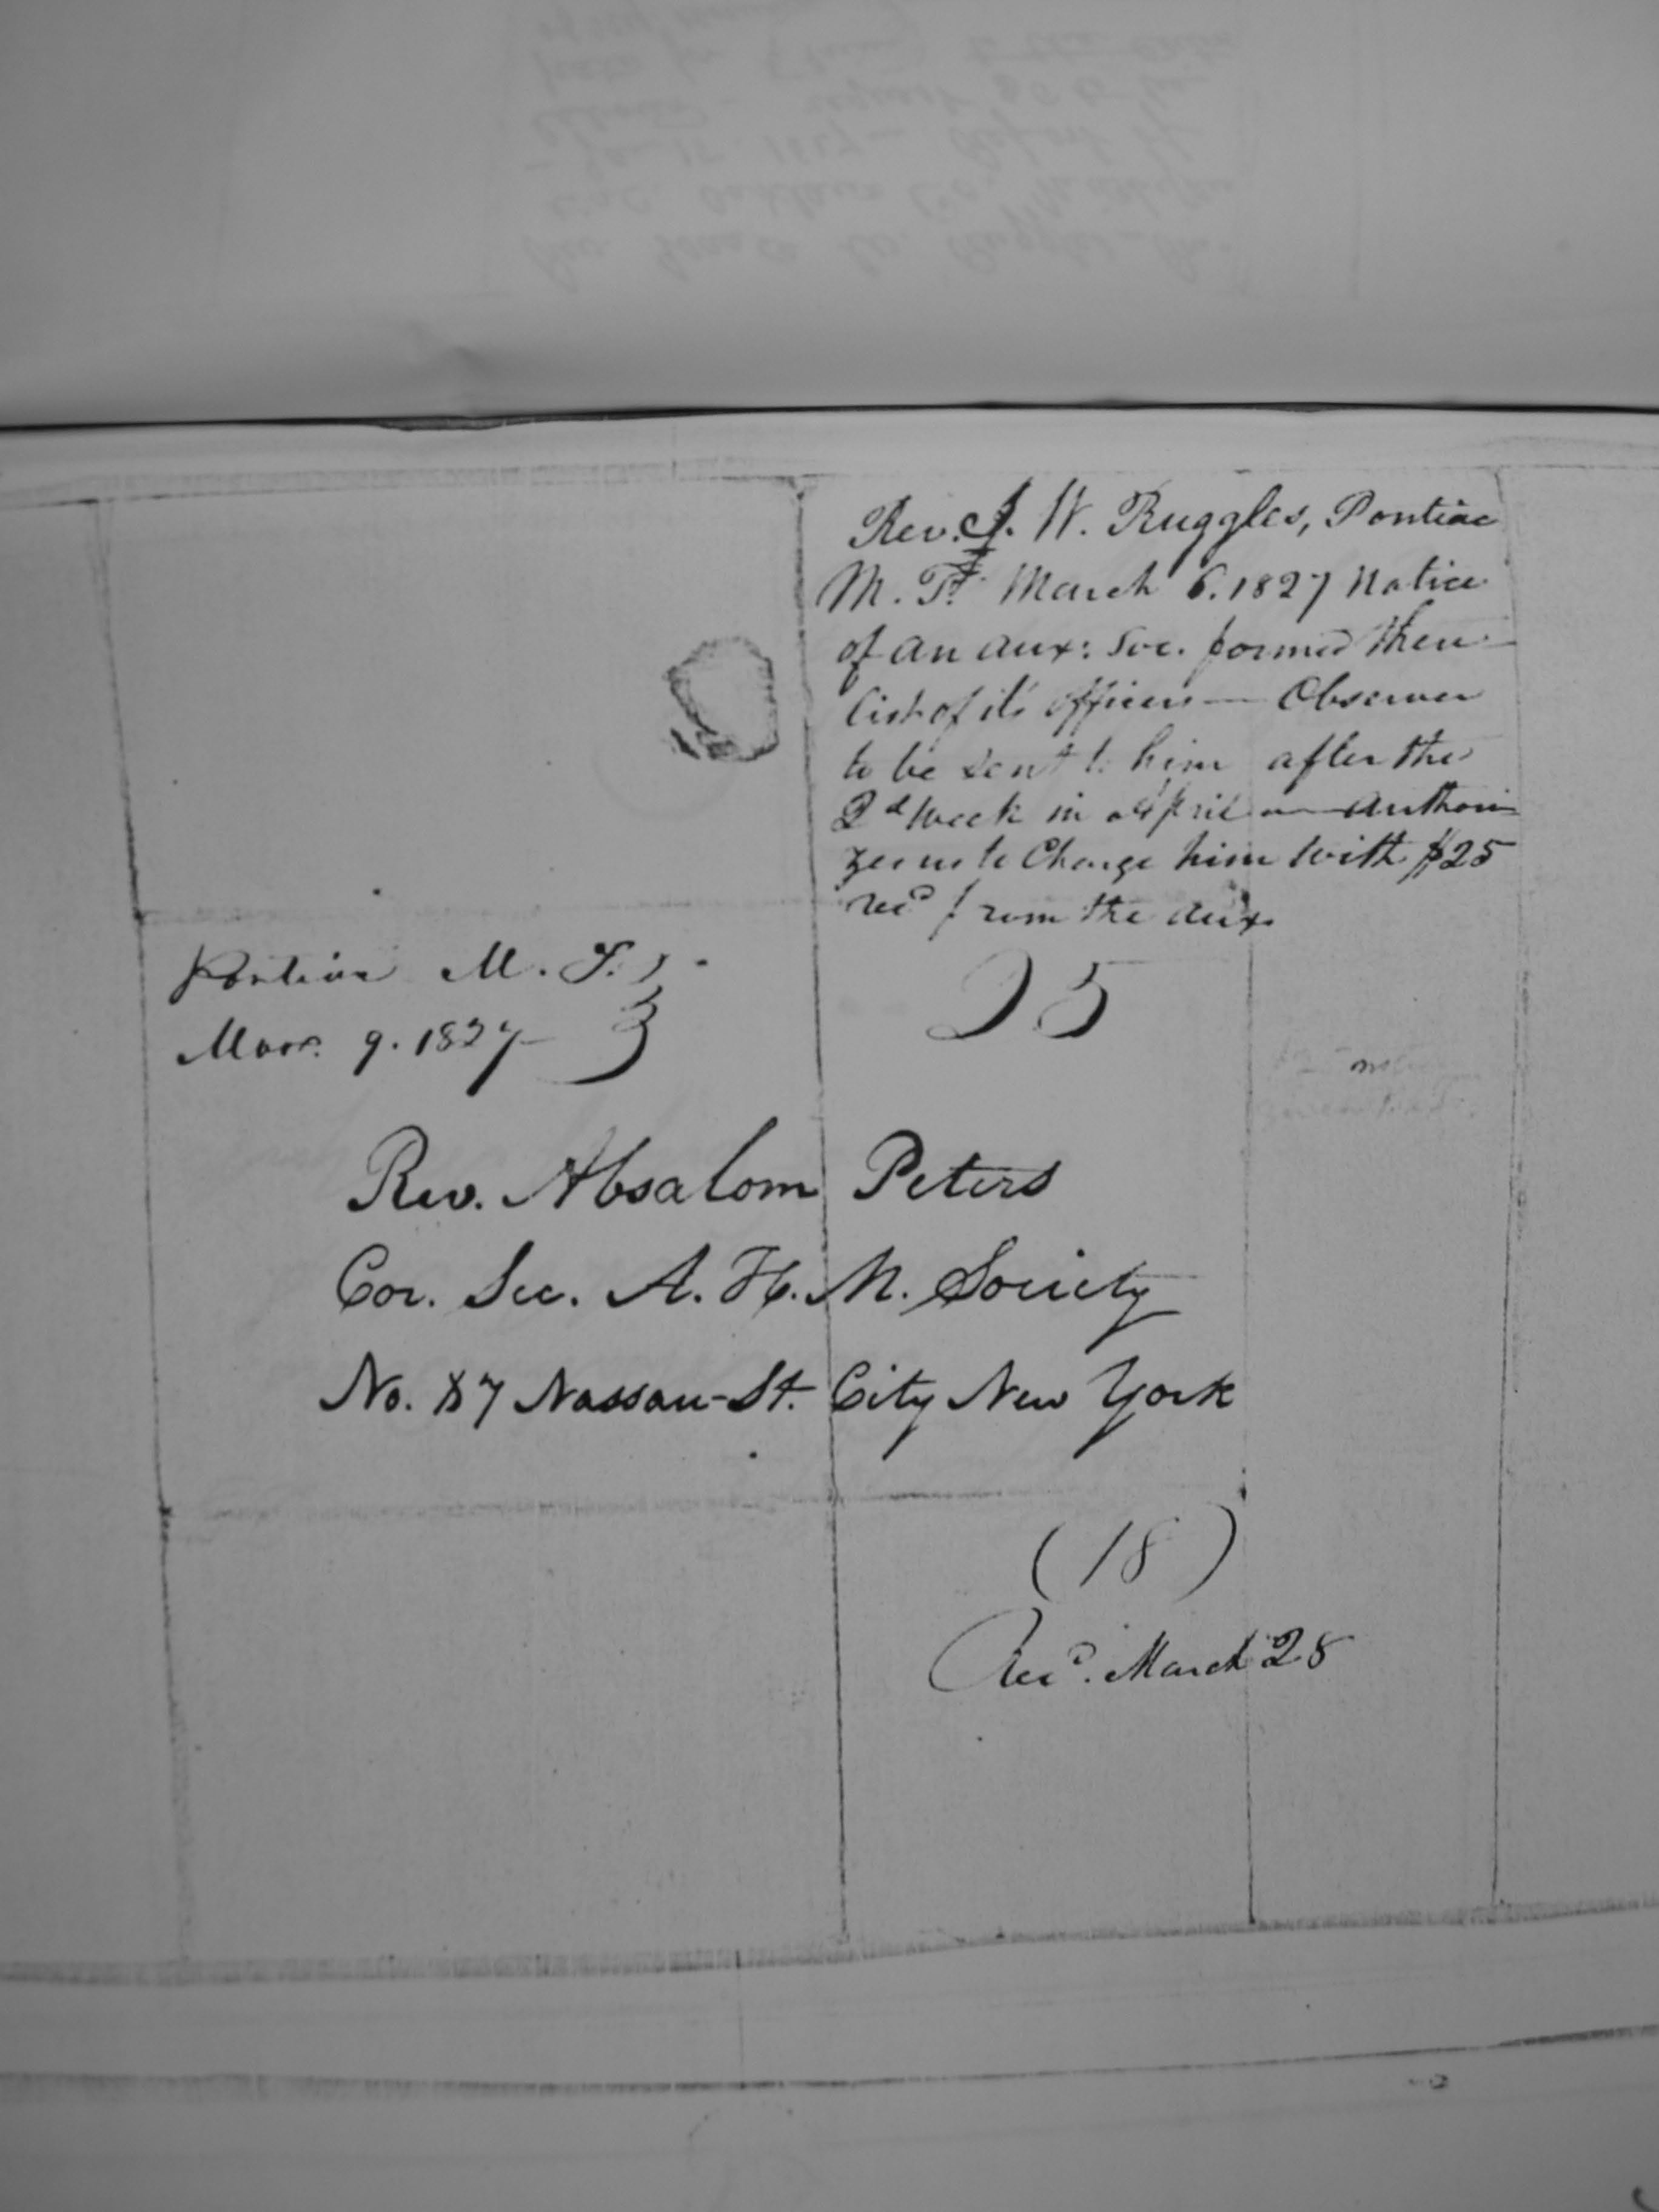 Rev. I. W. Ruggles, Pontiac
M. T. March 6. 1827 Notice
of an aux: Soc. formed there
List of it's officers — Observer
to be sent to him after the
2d week in April — Authori
zes us to Charge him with $25
recd from the aux.
Pontiac M. T.
Mar. 9. 1827
25
Rev. Absalom Peters
Cor. Sec. A. H. M. Society
No. 87 Nassau-St. City New York
(18)
Recd. March 28